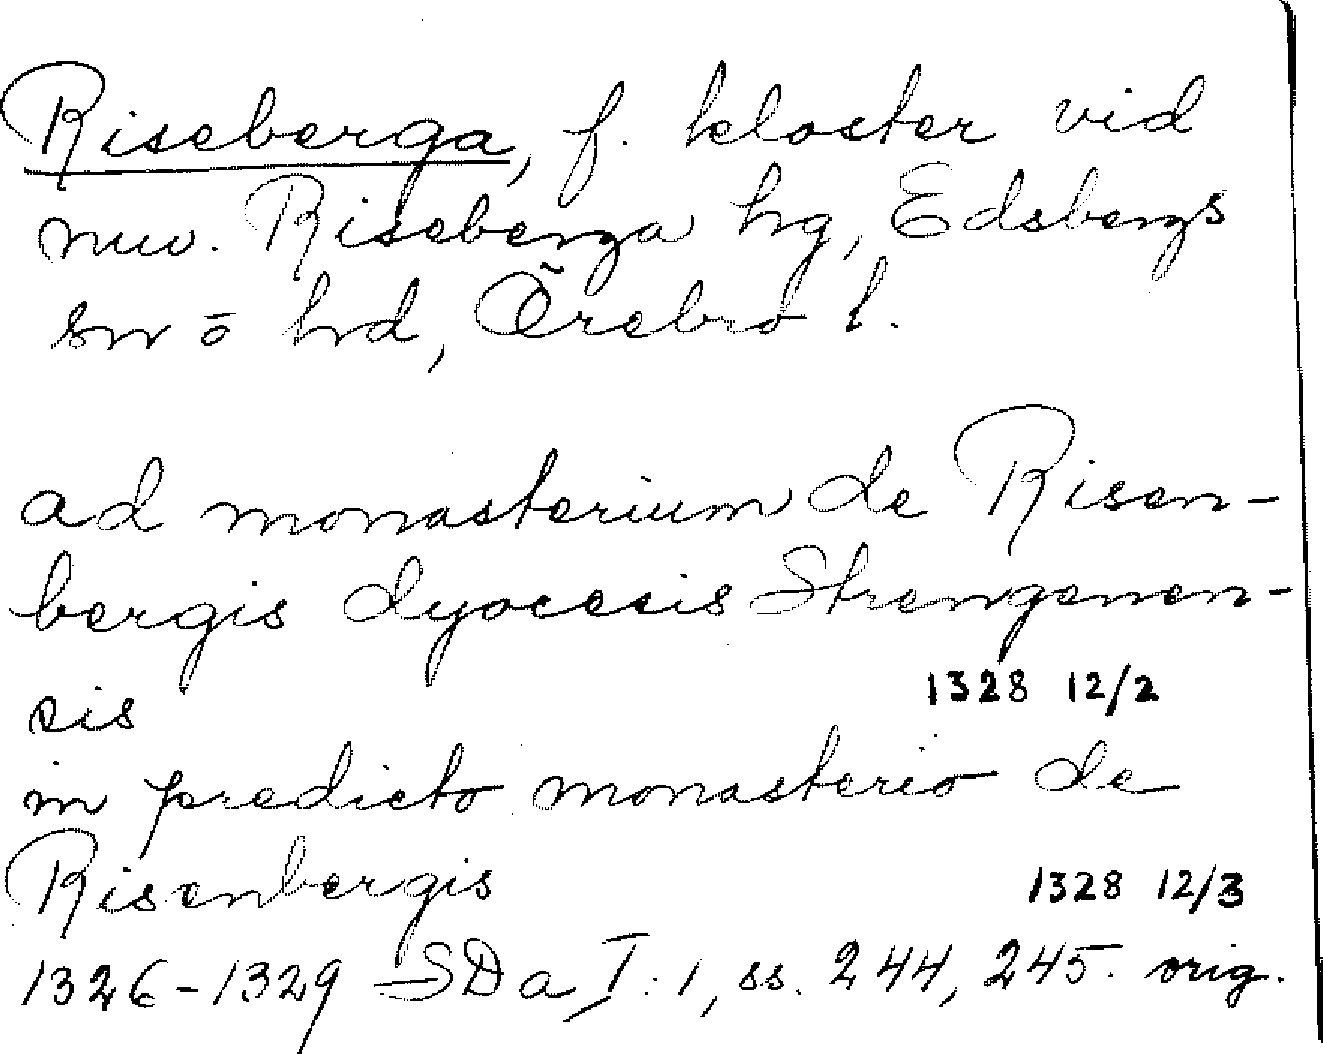 Riseberga, f. kloster vid
nuv. Riseberga hg, Edsbergs
sn ō hd, Örebro l.
ad monasterium de Risen-
bergis dyocesis Strengenen-
sis 1328 12/2
in predicto monasterio de
Risenbergis 1328 12/3
1326-1329 SDa I:1, ss. 244, 245. orig.